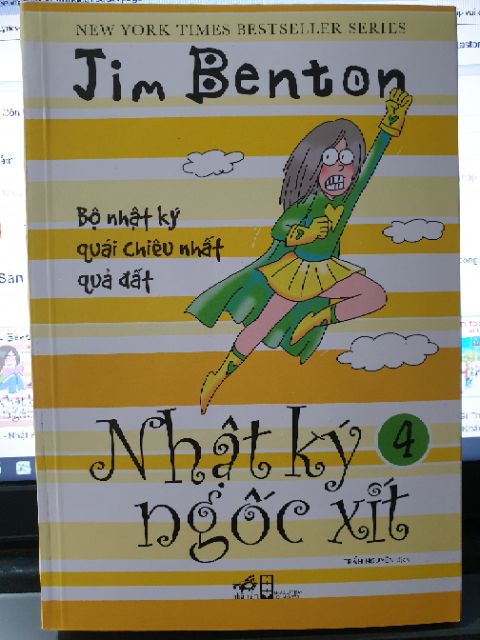 NEW YORK TIMES BESTSELLER SERIES
Jim Benton
Bộ nhật ký
quái chiêu nhất
quả đất
Nhật ký 4
ngốc xít
TRẦN NGUYÊN dịch